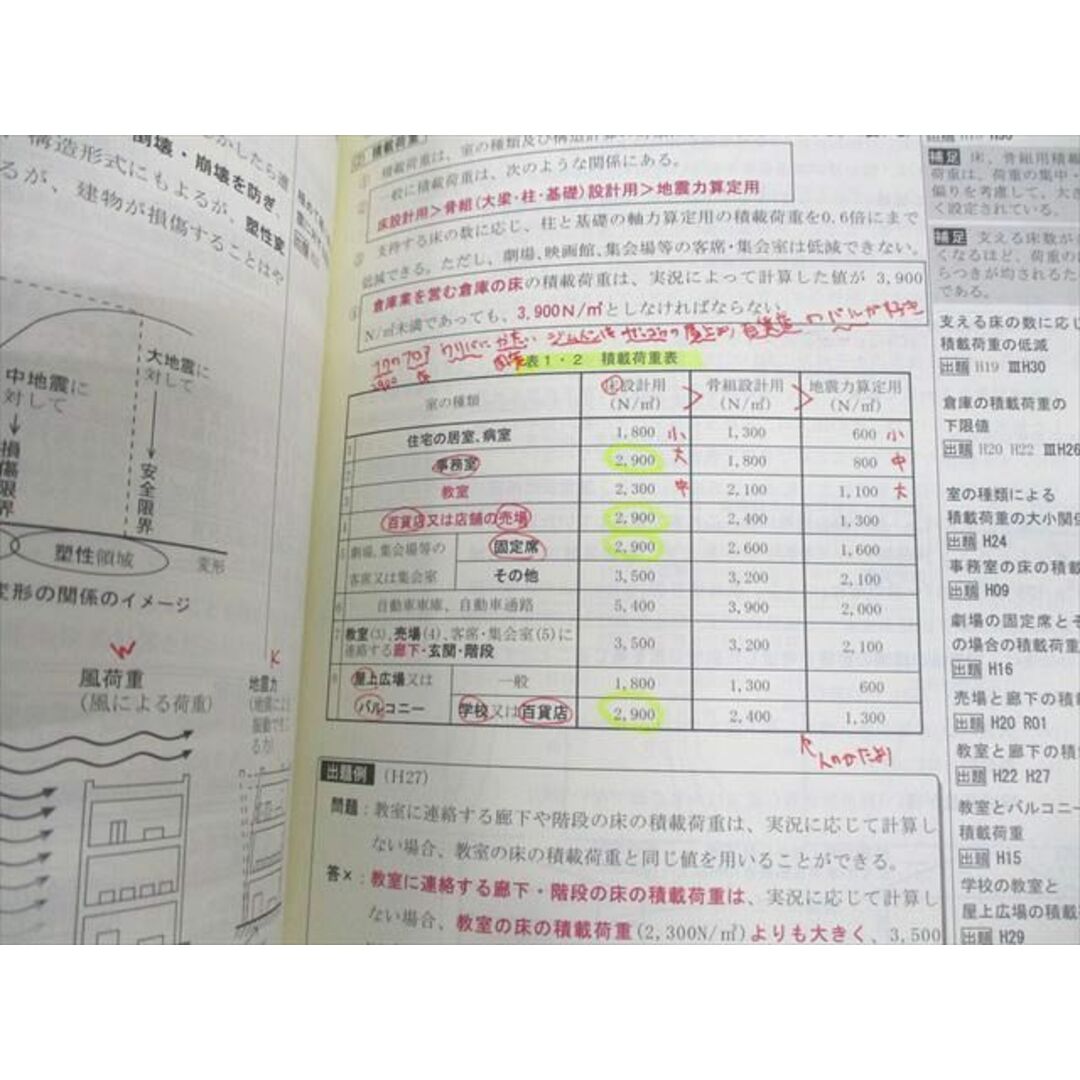 かしたら遭
倒壊・崩壊を防ぎ
構造形式にもよるが、塑性変
るが、建物が損傷することはや
大地震に
対して
中地震に
対して
損傷限界
安全限界
塑性領域
変形
変形の関係のイメージ
W
風荷重
(風による荷重)
K
地震力
積載荷重は、室の種類及び構造計算
① 一般に積載荷重は、次のような関係にある。
床設計用>骨組(大梁・柱・基礎)設計用>地震力算定用
支持する床の数に応じ、柱と基礎の軸力算定用の積載荷重を0.6倍にまで
低減できる。ただし、劇場、映画館、集会場等の客席・集会室は低減できない。
倉庫業を営む倉庫の床の積載荷重は、実況によって計算した値が 3,900
N/㎡未満であっても、3,900N/㎡としなければならない
表1・2 積載荷重表
室の種類 床設計用(N/㎡) 骨組設計用(N/㎡) 地震力算定用(N/㎡)
1 住宅の居室、病室 1,800 小 1,300 600 小
2 事務室 2,900 大 1,800 800 中
3 教室 2,300 中 2,100 1,100 大
4 百貨店又は店舗の売場 2,900 2,400 1,300
5 劇場、集会場等の 固定席 2,900 2,600 1,600
客席又は集会室 その他 3,500 3,200 2,100
6 自動車車庫、自動車通路 5,400 3,900 2,000
7 教室(3)、売場(4)、客席・集会室(5)に
連絡する廊下・玄関・階段 3,500 3,200 2,100
8 屋上広場又は 一般 1,800 1,300 600
バルコニー 学校又は百貨店 2,900 2,400 1,300
出題例 (H27)
問題:教室に連絡する廊下や階段の床の積載荷重は、実況に応じて計算し
ない場合、教室の床の積載荷重と同じ値を用いることができる。
答×:教室に連絡する廊下・階段の床の積載荷重は、実況に応じて計算し
ない場合、教室の床の積載荷重(2,300N/㎡)よりも大きく、3,500
補足 床、骨組用積載
荷重は、荷重の集中・
偏りを考慮して、大き
く設定されている。
補足 支える床数が
くなるほど、荷重の
らつきが均されるた
である。
支える床の数に応じ
積載荷重の低減
出題 H19 ⅢH30
倉庫の積載荷重の
下限値
出題 H20 H22 ⅢH26
室の種類による
積載荷重の大小関係
出題 H24
事務室の床の積載
出題 H09
劇場の固定席とそ
の場合の積載荷重
出題 H16
売場と廊下の積
出題 H20 R01
教室と廊下の積
出題 H22 H27
教室とバルコニー
積載荷重
出題 H15
学校の教室と
屋上広場の積載
出題 H29